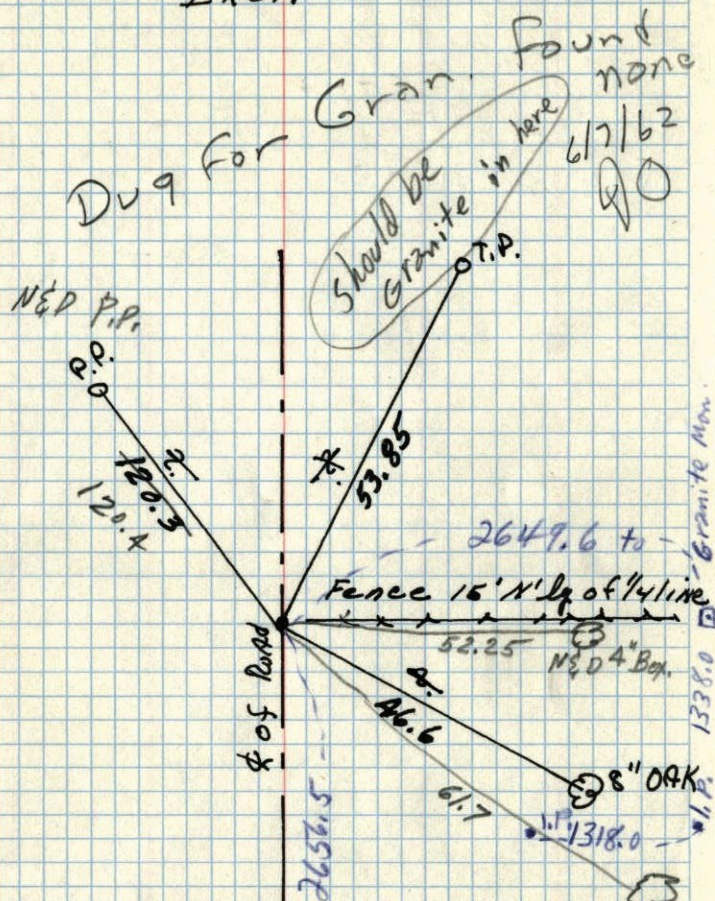 Dug for Gran. Found
none
6/7/62
should be
Granite in here
T.P.
N&D P.P.
P.P.
120.3
120.4
53.85
2649.6 to
Granite Mon.
Fence 15' N'ly of 1/4 line
52.25
N&D 4" Box.
℄ of Road
46.6
8" OAK
61.7
I.P.
1318.0
I.P. 1338.0
2656.5